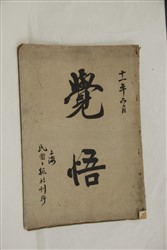 十一年六月
覺悟
上海
民國日報社刊行